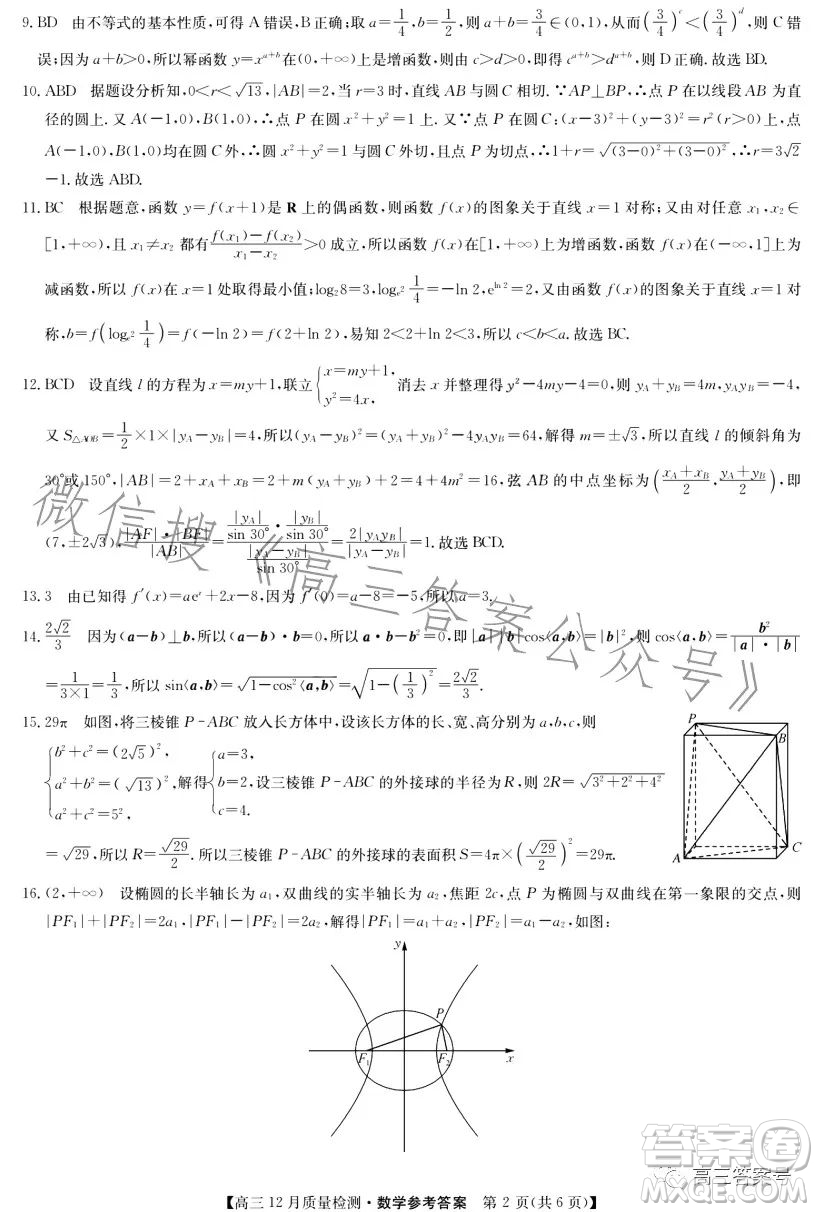 9. BD　由不等式的基本性质,可得 A 错误,B 正确;取 a=1/4,b=1/2,则 a+b=3/4∈(0,1),从而(3/4)^c<(3/4)^d,则 C 错
误;因为 a+b>0,所以幂函数 y=x^{a+b}在(0,+∞)上是增函数,则由 c>d>0,即得 c^{a+b}>d^{a+b},则 D 正确.故选 BD.
10. ABD　据题设分析知,0<r<√13,|AB|=2,当 r=3 时,直线 AB 与圆 C 相切.∵AP⊥BP,∴点 P 在以线段 AB 为直
径的圆上.又 A(-1,0),B(1,0),∴点 P 在圆 x²+y²=1 上.又∵点 P 在圆 C:(x-3)²+(y-3)²=r²(r>0)上,点
A(-1,0),B(1,0)均在圆 C 外,∴圆 x²+y²=1 与圆 C 外切,且点 P 为切点,∴1+r=√((3-0)²+(3-0)²),∴r=3√2
-1.故选 ABD.
11. BC　根据题意,函数 y=f(x+1)是 R 上的偶函数,则函数 f(x)的图象关于直线 x=1 对称;又由对任意 x₁,x₂∈
[1,+∞),且 x₁≠x₂ 都有(f(x₁)-f(x₂))/(x₁-x₂)>0 成立,所以函数 f(x)在[1,+∞)上为增函数,函数 f(x)在(-∞,1]上为
减函数,所以 f(x)在 x=1 处取得最小值;log₂8=3,log_{e²}1/4=-ln 2,e^{ln 2}=2,又由函数 f(x)的图象关于直线 x=1 对
称,b=f(log_{e²}1/4)=f(-ln 2)=f(2+ln 2),易知 2<2+ln 2<3,所以 c<b<a.故选 BC.
12. BCD　设直线 l 的方程为 x=my+1,联立{x=my+1, y²=4x,消去 x 并整理得 y²-4my-4=0,则 y_A+y_B=4m,y_Ay_B=-4,
又 S△AOB=1/2×1×|y_A-y_B|=4,所以(y_A-y_B)²=(y_A+y_B)²-4y_Ay_B=64,解得 m=±√3,所以直线 l 的倾斜角为
30°或 150°,|AB|=2+x_A+x_B=2+m(y_A+y_B)+2=4+4m²=16,弦 AB 的中点坐标为((x_A+x_B)/2,(y_A+y_B)/2),即
(7,±2√3),|AF|·|BF|/|AB|=(|y_A|/sin 30°·|y_B|/sin 30°)/(|y_A-y_B|/sin 30°)=2|y_Ay_B|/|y_A-y_B|=1.故选 BCD.
13. 3　由已知得 f′(x)=ae^x+2x-8,因为 f′(0)=a-8=-5,所以 a=3.
14. 2√2/3　因为(a-b)⊥b,所以(a-b)·b=0,所以 a·b-b²=0,即|a||b|cos⟨a,b⟩=|b|²,则 cos⟨a,b⟩=b²/(|a|·|b|)
=1/(3×1)=1/3,所以 sin⟨a,b⟩=√(1-cos²⟨a,b⟩)=√(1-(1/3)²)=2√2/3.
15. 29π　如图,将三棱锥 P-ABC 放入长方体中,设该长方体的长、宽、高分别为 a,b,c,则
{b²+c²=(2√5)², a²+b²=(√13)², a²+c²=5²,解得{a=3, b=2, c=4.设三棱锥 P-ABC 的外接球的半径为 R,则 2R=√(3²+2²+4²)
=√29,所以 R=√29/2.所以三棱锥 P-ABC 的外接球的表面积 S=4π×(√29/2)²=29π.
P
B
A
C
16. (2,+∞)　设椭圆的长半轴长为 a₁,双曲线的实半轴长为 a₂,焦距 2c,点 P 为椭圆与双曲线在第一象限的交点,则
|PF₁|+|PF₂|=2a₁,|PF₁|-|PF₂|=2a₂,解得|PF₁|=a₁+a₂,|PF₂|=a₁-a₂,如图:
y
P
F₁
F₂
x
微信搜《高三答案公众号》
【高三 12 月质量检测·数学参考答案　第 2 页(共 6 页)】
答案圈
高三答案号